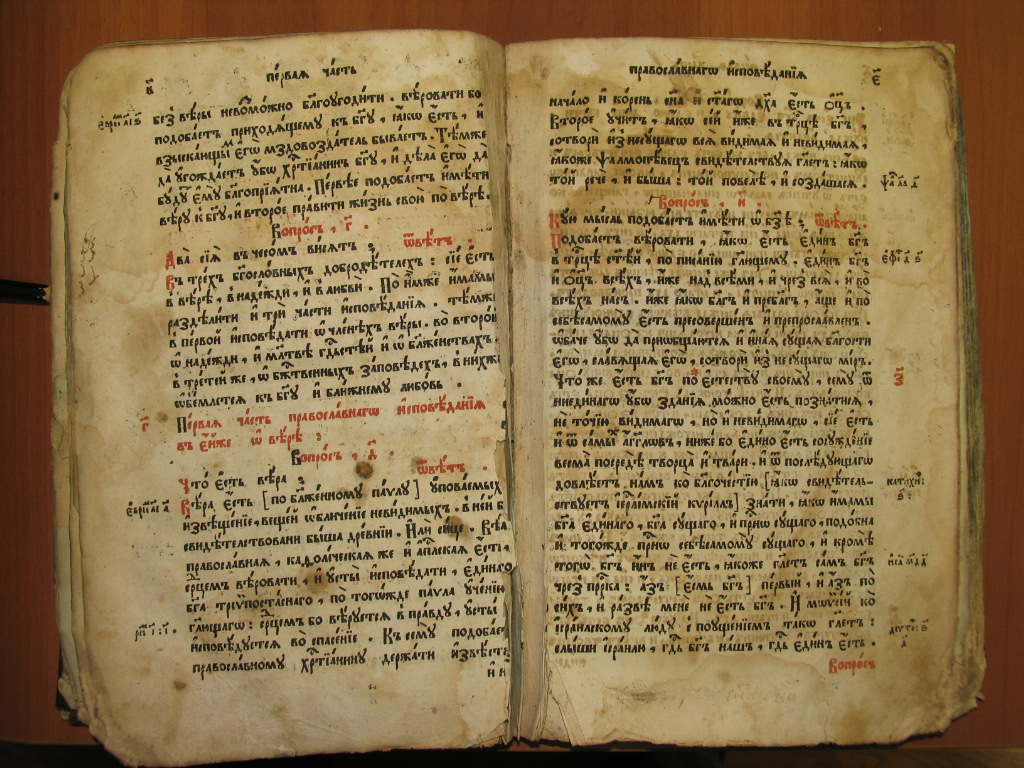 в҃
пе́рваѧ ча́сть
без̾ вѣ́ры невозмо́жно бл҃гоугоди́ти . вѣ́ровати бо
подоба́етъ приходѧ́щему къ бг҃у , ꙗ҆́кѡ є҆́сть , и҆
взыска́ющымъ є҆гѡ̀ мздовозда́тель быва́етъ . Тѣ́мже
да ᲂу҆гожда́етъ ᲂу҆́бѡ хрⷭ҇тїа́нинъ бг҃у , и҆ дѣла̀ є҆гѡ̀ да
бу́дутъ є҆му̀ бл҃гопрїѧ́тна . Пе́рвѣе подоба́етъ и҆мѣ́ти
вѣ́ру къ бг҃у , и҆ второ́е пра́вити жи́знь свою̀ по вѣ́рѣ .
Вопро́съ , г҃ .
Два̀ сїѧ̑ въ че́сомъ висѧ́тъ ; ѿвѣ́тъ .
Въ трⷯе́хъ бг҃осло́вныхъ добродѣ́телехъ : сїѐ є҆́сть
в̾ вѣ́рѣ , в̾ наде́жди , и҆ в̾ любвѝ . По ни́мже и҆́мамы
раздѣли́ти и҆ трѝ ча́сти и҆сповѣ́данїѧ . тѣ́мже
в̾ пе́рвой и҆сповѣ́дати ѡ҆ чле́нѣхъ вѣ́ры . во второ́й
ѡ҆ наде́жди , и҆ мл҃твѣ гдⷭ҇стѣй и҆ ѡ҆ бл҃же́нствахъ .
в̾ тре́тей же , ѡ҆ бж҃е́ственныхъ за́повѣдехъ , в̾ ни́хже
ѡ҆бе́млетсѧ къ бг҃у и҆ бли́жнему любо́вь .
г҃
Пе́рваѧ ча́сть правосла́внагѡ и҆сповѣ́данїѧ
въ не́йже ѡ҆ вѣ́рѣ :
Вопро́съ , д҃ .
Что̀ є҆́сть вѣ́ра ; ѿвѣ́тъ .
Вѣ́ра є҆́сть [по бл҃же́нному па́ѵлу] ᲂу҆пова́емыхъ
и҆звѣще́нїе , веще́й ѡ҆бличе́нїе неви́димыхъ . в̾ не́й бо
свидѣ́тельствовани бы́ша дре́внїи . И҆лѝ си́це . Вѣ́ра
правосла́внаѧ , каѳоли́ческаѧ же и҆ а҆пⷭ҇лскаѧ є҆́сть ,
се́рдцемъ вѣ́ровати , и҆ ᲂу҆сты̀ и҆сповѣ́дати , є҆ди́наго
бг҃а трїѵпоста́снаго , по того́жде па́ѵла ᲂу҆че́нїю
гл҃ющагѡ : се́рдцемъ бо вѣ́руетсѧ в̾ пра́вду , ᲂу҆сты́
и҆сповѣ́дуетсѧ во сп҃се́нїе . Къ се́му подоба́етъ
правосла́вному хрⷭ҇тїа́нину держа́ти и҆звѣ́стно
правосла́внагѡ и҆сповѣ́данїѧ
є҃
нача́ло и҆ ко́рень сн҃а и҆ ст҃а́гѡ дх҃а є҆́сть ѻ҆ц҃ъ .
Второ́е ᲂу҆чи́тъ , ꙗ҆́кѡ се́й и҆́же въ трⷪ҇цѣ бг҃ъ ,
сотворѝ и҆з̾ несу́щагѡ всѧ̑ ви́димаѧ и҆ неви́димаѧ ,
ꙗ҆́коже ѱалмопѣ́вецъ свидѣ́тельствуѧ гл҃етъ : ꙗ҆́кѡ
то́й речѐ , и҆ бы́ша : то́й повелѣ̀ , и҆ созда́шасѧ .
Вопро́съ . и҃ .
Ку́ю мы́сль подоба́етъ и҆мѣ́ти ѡ҆ бз҃ѣ ; ѿвѣ́тъ .
Подоба́етъ вѣ́ровати , ꙗ҆́кѡ є҆́сть є҆ди́нъ бг҃ъ
в̾ трⷪ҇цѣ ст҃ѣ́й , по писа́нїю гл҃ющему . є҆ди́нъ бг҃ъ
и҆ ѻ҆ц҃ъ всѣ́хъ , и҆́же над̾ все́ми , и҆ чрез̾ всѧ̑ , и҆ во
всѣ́хъ на́съ . и҆́же ꙗ҆́кѡ бл҃гъ и҆ пребл҃гъ , а҆́ще и҆ по
себѣ̀самому є҆́сть пресоверше́нъ и҆ препросла́вленъ .
ѻ҆ба́че ᲂу҆́бѡ да приѡбща́ютсѧ и҆ и҆на̑ѧ су̑щаѧ бл҃гости
є҆гѡ̀ , сла́вѧщаѧ є҆гѡ̀ , сотворѝ и҆з̾ несу́щагѡ мі́ръ .
Что́ же є҆́сть бг҃ъ по є҆стеству̀ своему̀ , сему̀ ѿ
ниеди́нагѡ ᲂу҆́бѡ зда́нїѧ мо́жно є҆́сть позна́тисѧ ,
не то́чїю ви́димагѡ , но̀ и҆ неви́димагѡ , сїѐ є҆́сть
и҆ ѿ са́мыхъ а҆́гг҃лѡвъ , ниже́ бо є҆ди́но є҆́сть сосужде́нїе
весма̀ посредѣ̀ творца̀ и҆ тва́ри . и҆ ѿ послѣ́дующагѡ
довлѣ́етъ на́мъ ко бл҃гоче́стїю [ꙗ҆́кѡ свидѣ́тель-
ствуетъ і҆ерⷭ҇ли́мскїй кѷрі́ллъ] зна́ти , ꙗ҆́кѡ и҆́мамы
бг҃а є҆ди́наго , бг҃а су́щаго , и҆ при́снѡ су́щаго , подо́бна
и҆ того́жде при́снѡ себѣ̀самому су́щаго , и҆ кромѣ̀
тогѡ̀ бг҃ъ и҆́нъ не є҆́сть , ꙗ҆́коже гл҃етъ са́мъ бг҃ъ
чрез̾ прⷪ҇ро́ка : а҆́зъ [є҆́смь бг҃ъ] пе́рвый , и҆ а҆́зъ по
си́хъ , и҆ ра́звѣ менє̀ не є҆́сть бг҃ъ . И҆ мѡѷсі́й ко
і҆сра́илскому лю́ду с̾ поуще́нїемъ та́кѡ гл҃етъ :
слы́ши і҆сра́илю , гдⷭ҇ь бг҃ъ на́шъ , гдⷭ҇ь є҆ди́нъ є҆́сть .
Вопро́съ